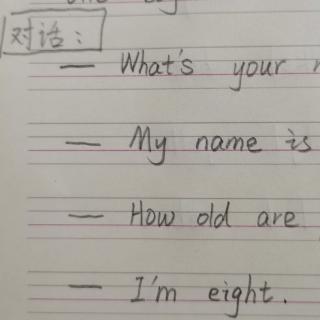 对话:
— What's your
— My name is
— How old are
— I'm eight.